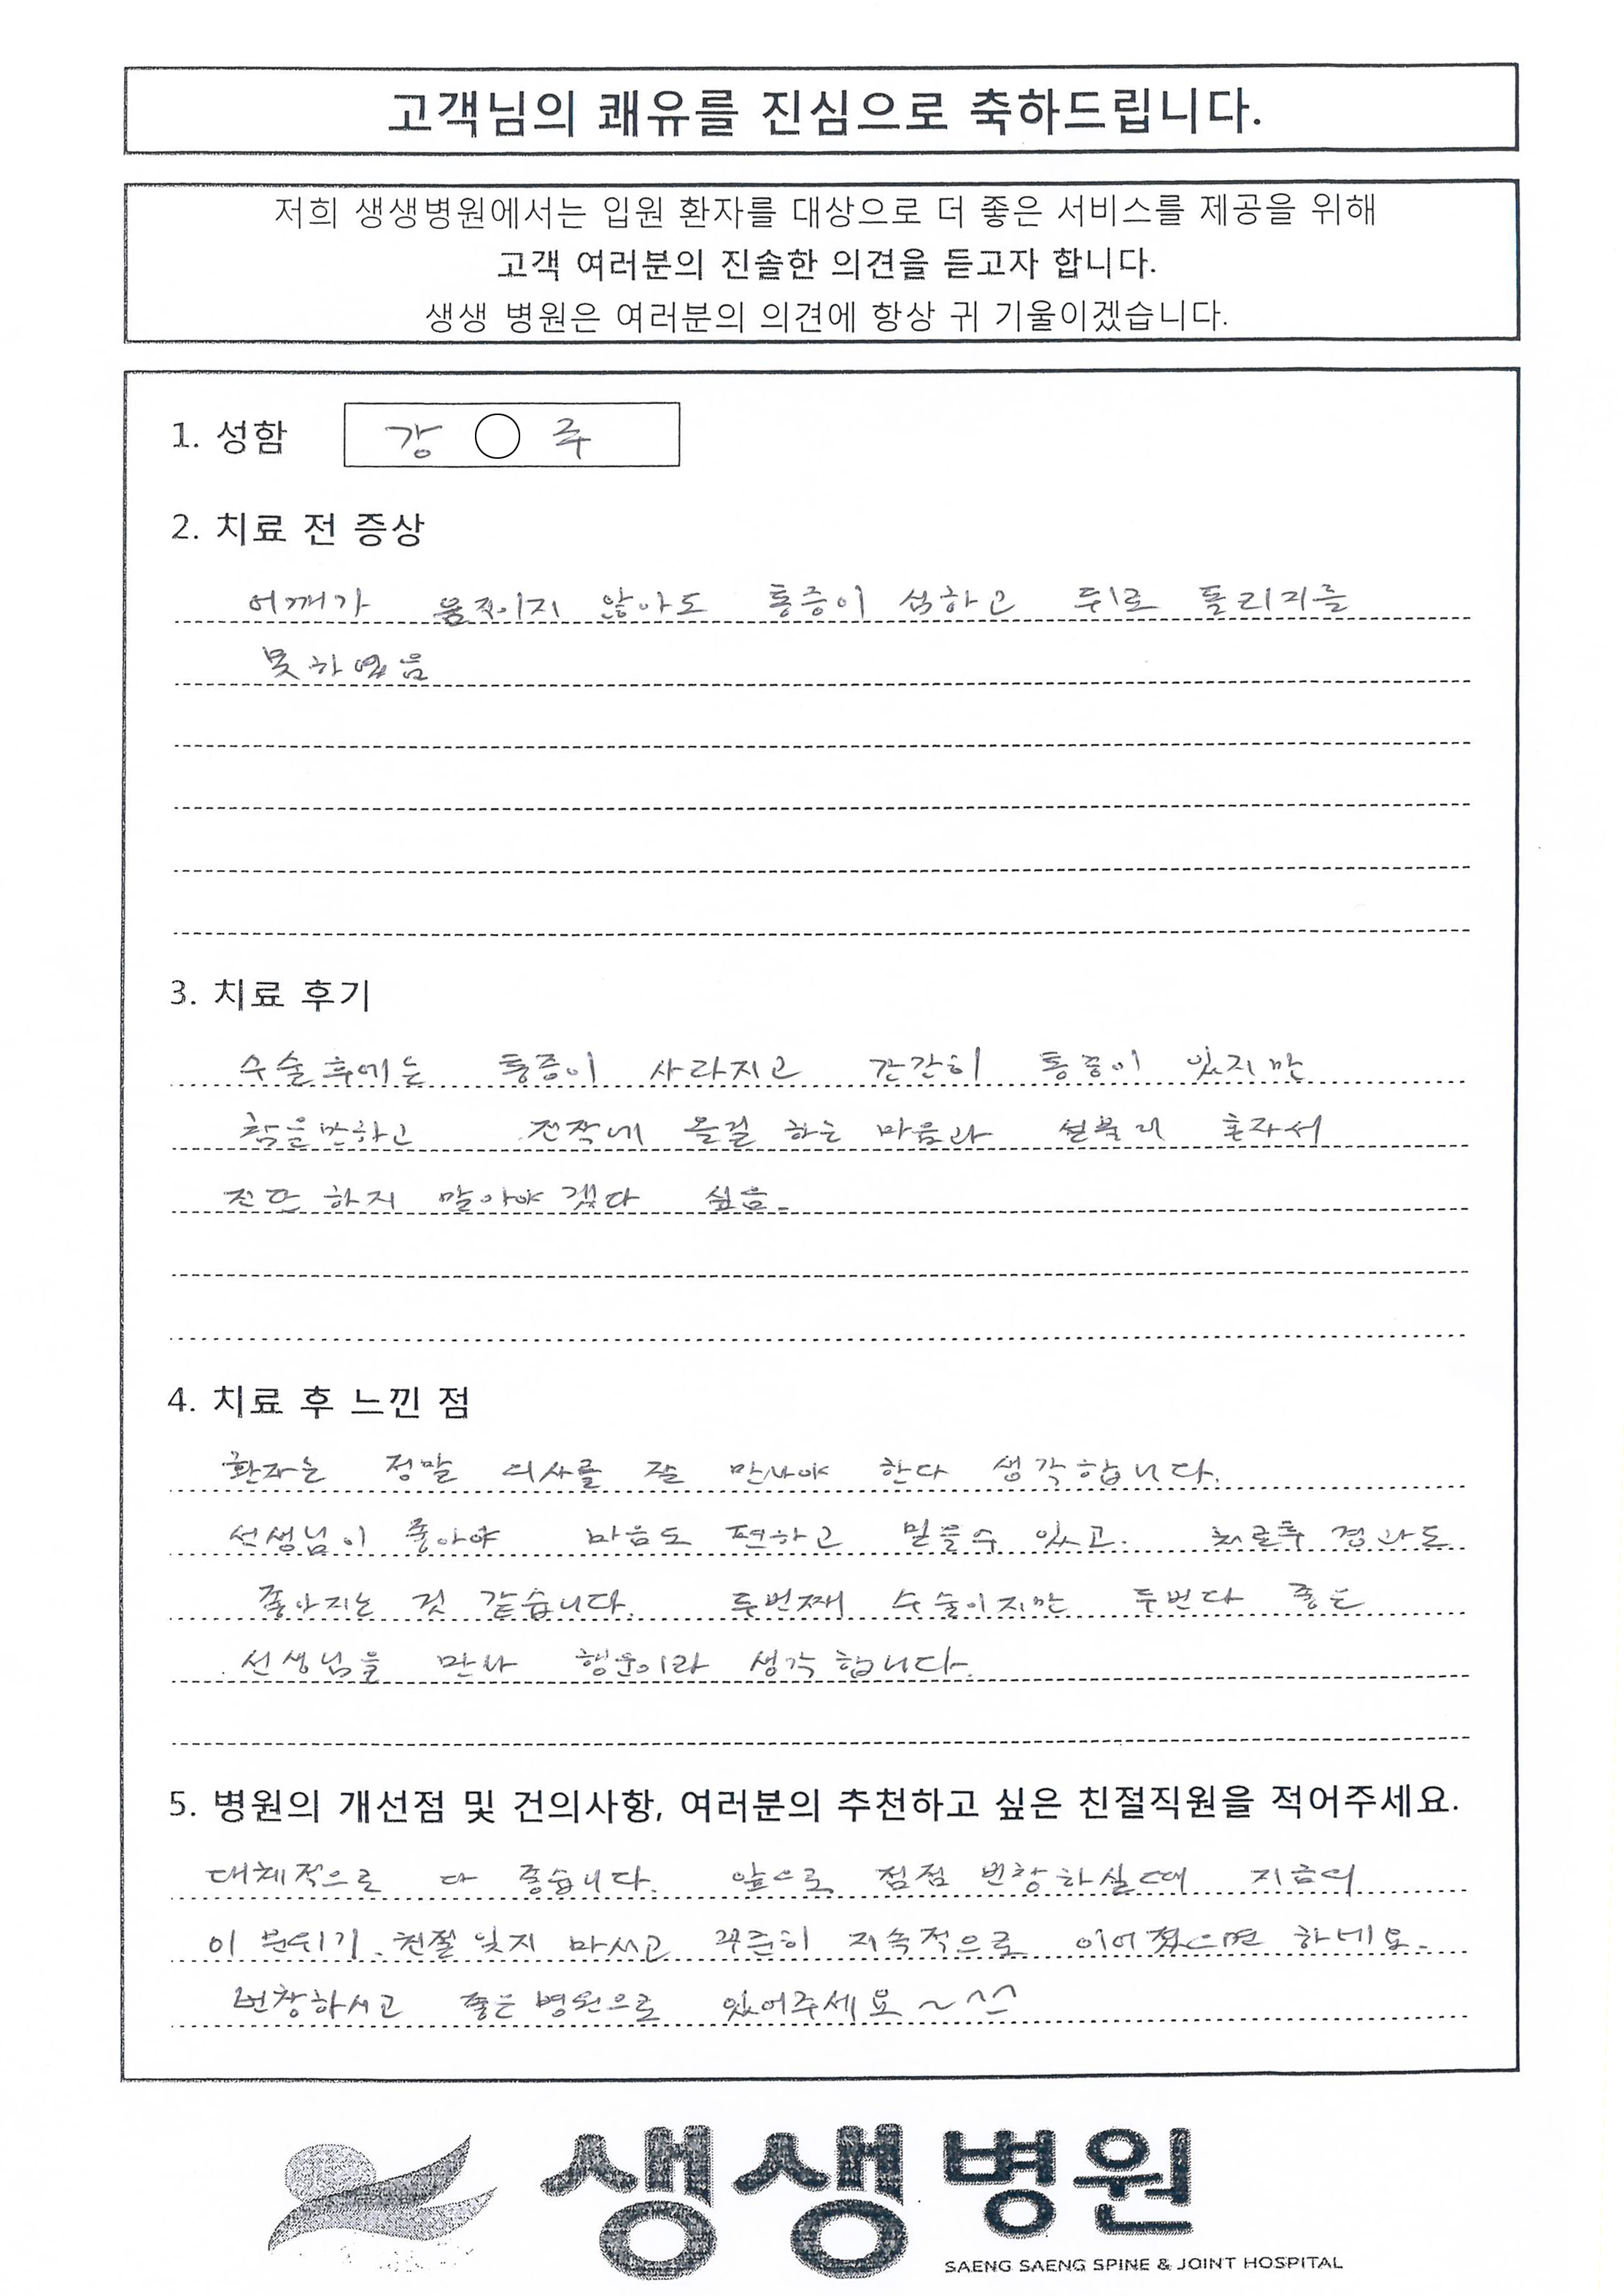 고객님의 쾌유를 진심으로 축하드립니다.
저희 생생병원에서는 입원 환자를 대상으로 더 좋은 서비스를 제공을 위해
고객 여러분의 진솔한 의견을 듣고자 합니다.
생생 병원은 여러분의 의견에 항상 귀 기울이겠습니다.
1. 성함 강 ○ 주
2. 치료 전 증상
어깨가 움직이지 않아도 통증이 심하고 뒤로 돌리지를
못하였음
3. 치료 후기
수술후에는 통증이 사라지고 간간히 통증이 있지만
참을만하고 진작에 올걸 하는 마음과 섣불리 혼자서
진단 하지 말아야 겠다 싶음.
4. 치료 후 느낀 점
환자는 정말 의사를 잘 만나야 한다 생각합니다.
선생님이 좋아야 마음도 편하고 믿을수 있고. 치료후 경과도
좋아지는 것 같습니다. 두번째 수술이지만 두번다 좋은
선생님을 만나 행운이라 생각 합니다.
5. 병원의 개선점 및 건의사항, 여러분의 추천하고 싶은 친절직원을 적어주세요.
대체적으로 다 좋습니다. 앞으로 점점 번창하실때 지금의
이 분위기. 친절 잊지 마시고 꾸준히 지속적으로 이어졌으면 하네요.
번창하시고 좋은 병원으로 있어주세요~^^
생생병원
SAENG SAENG SPINE & JOINT HOSPITAL